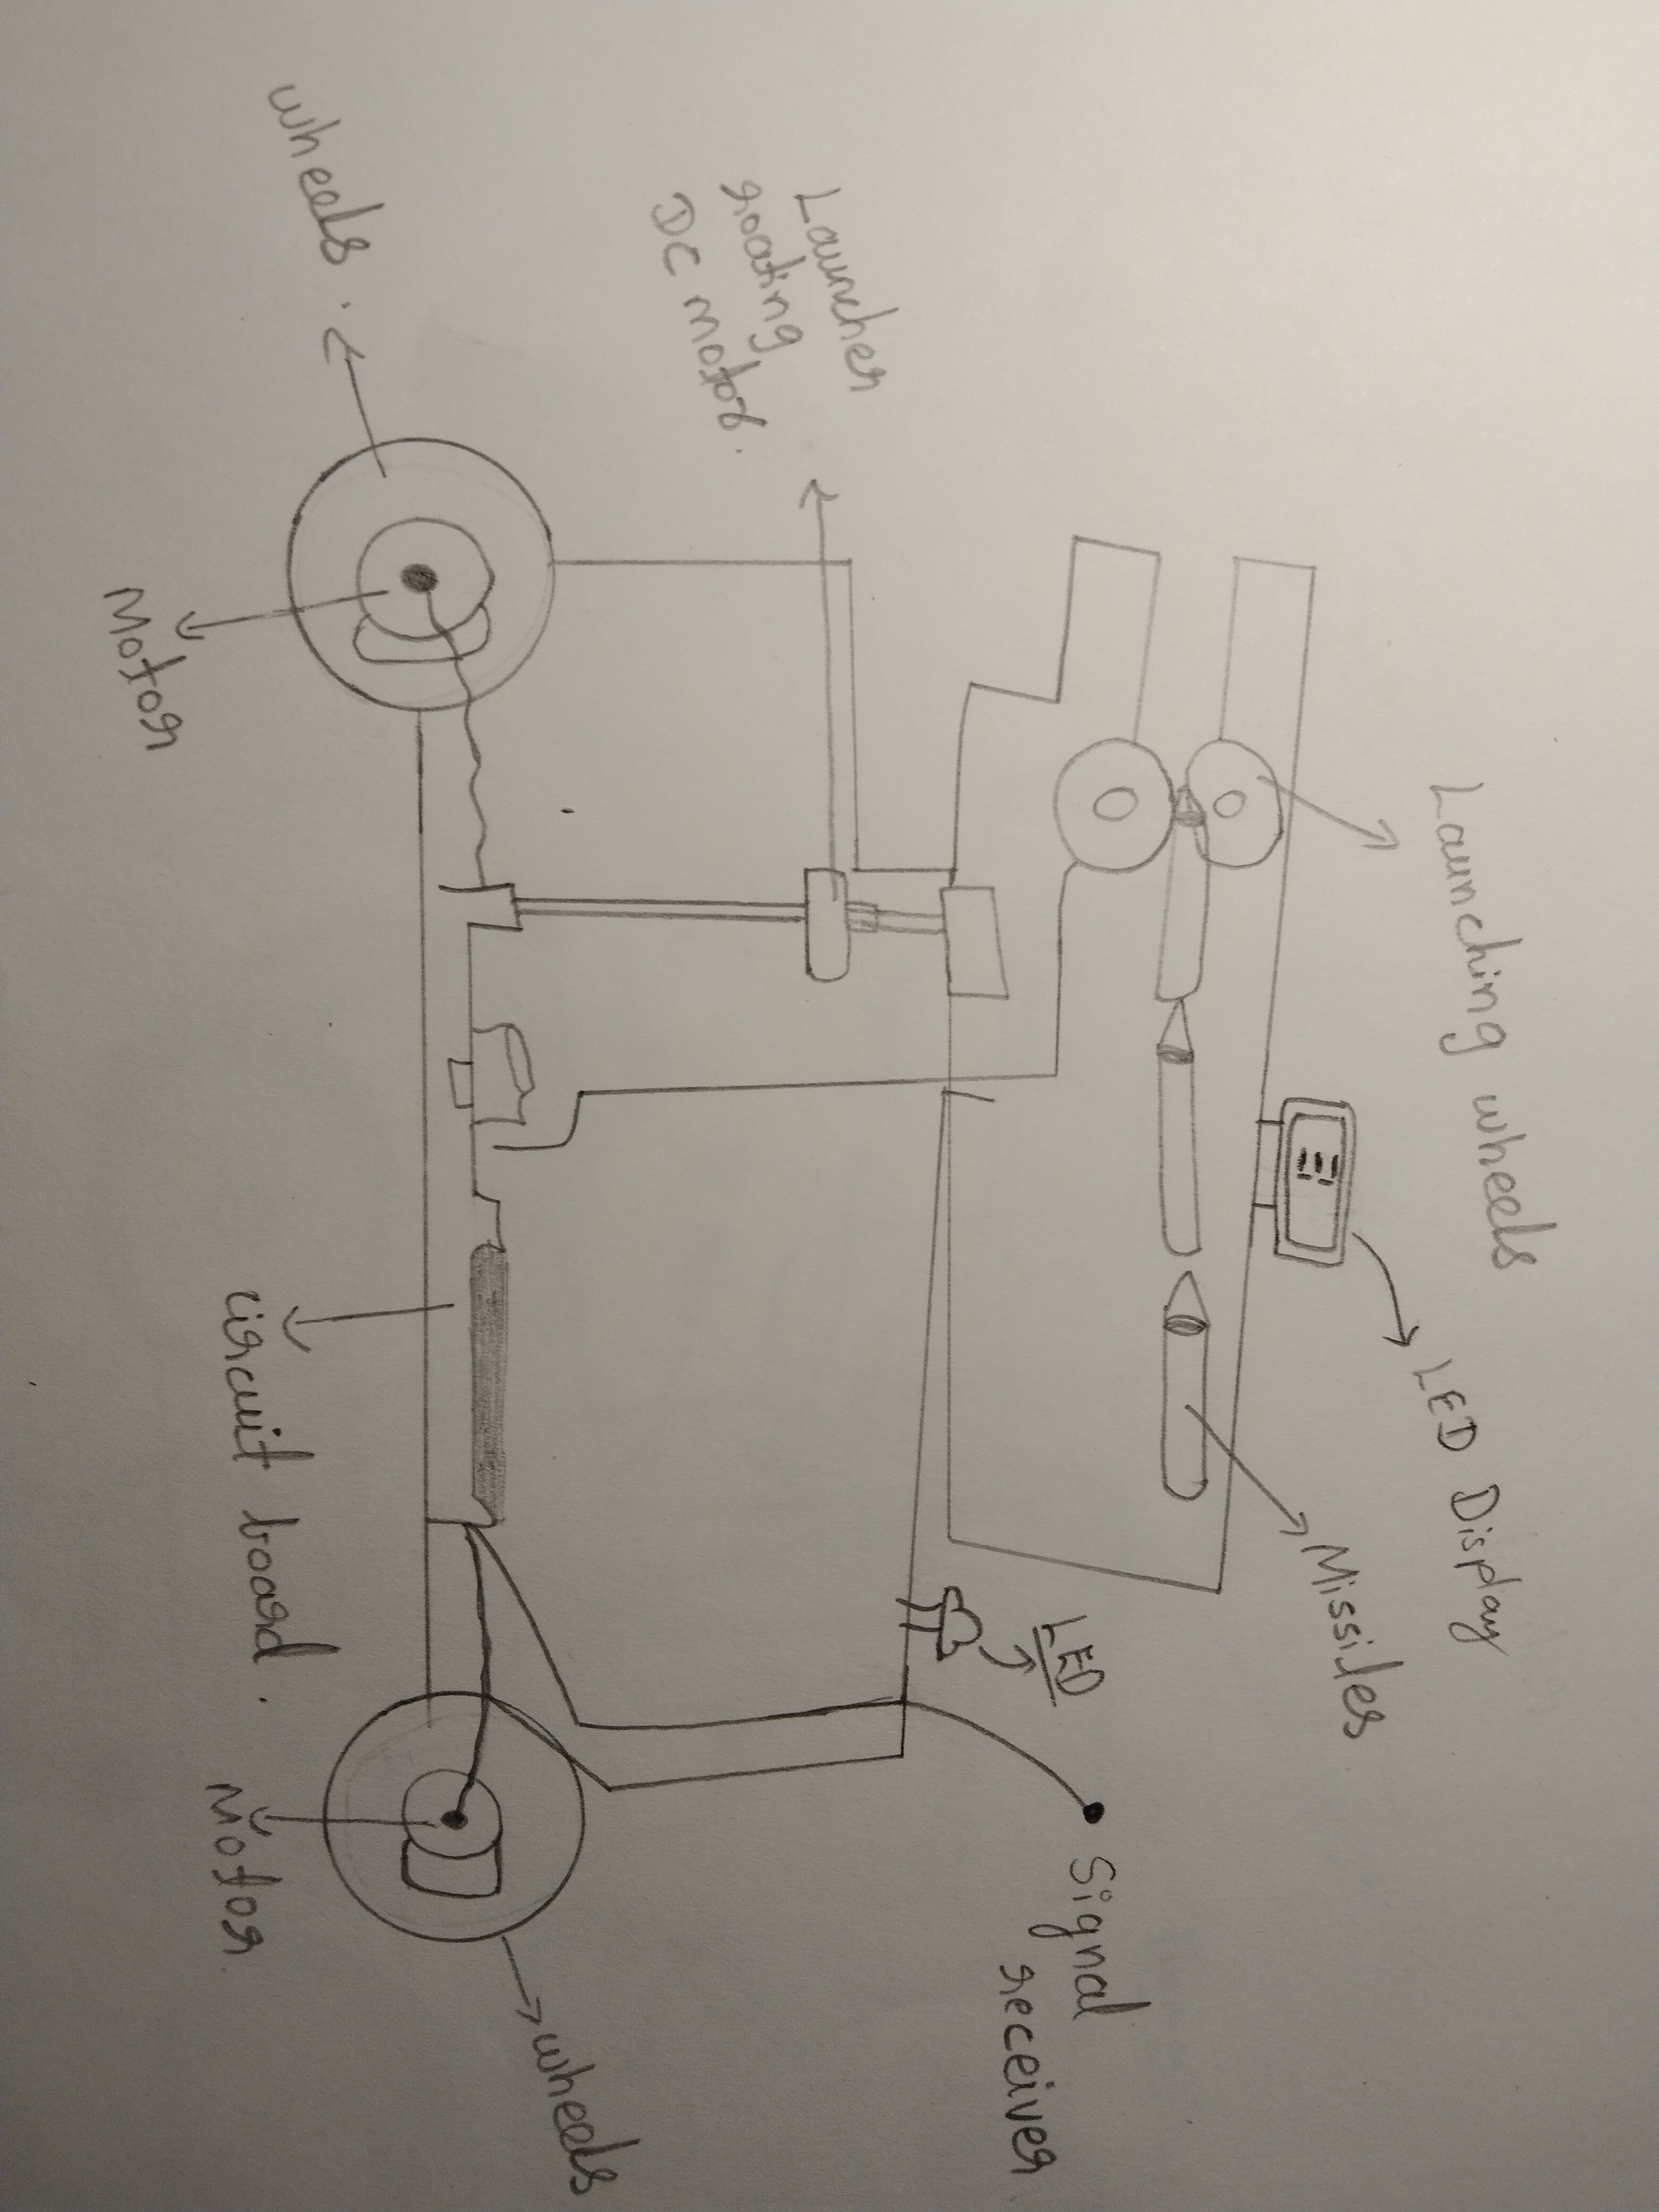 Launching wheels
LED Display
Missiles
LED
Signal
receiver
Launcher
roating
DC motor.
wheels
wheels.
circuit board.
Motor
Motor